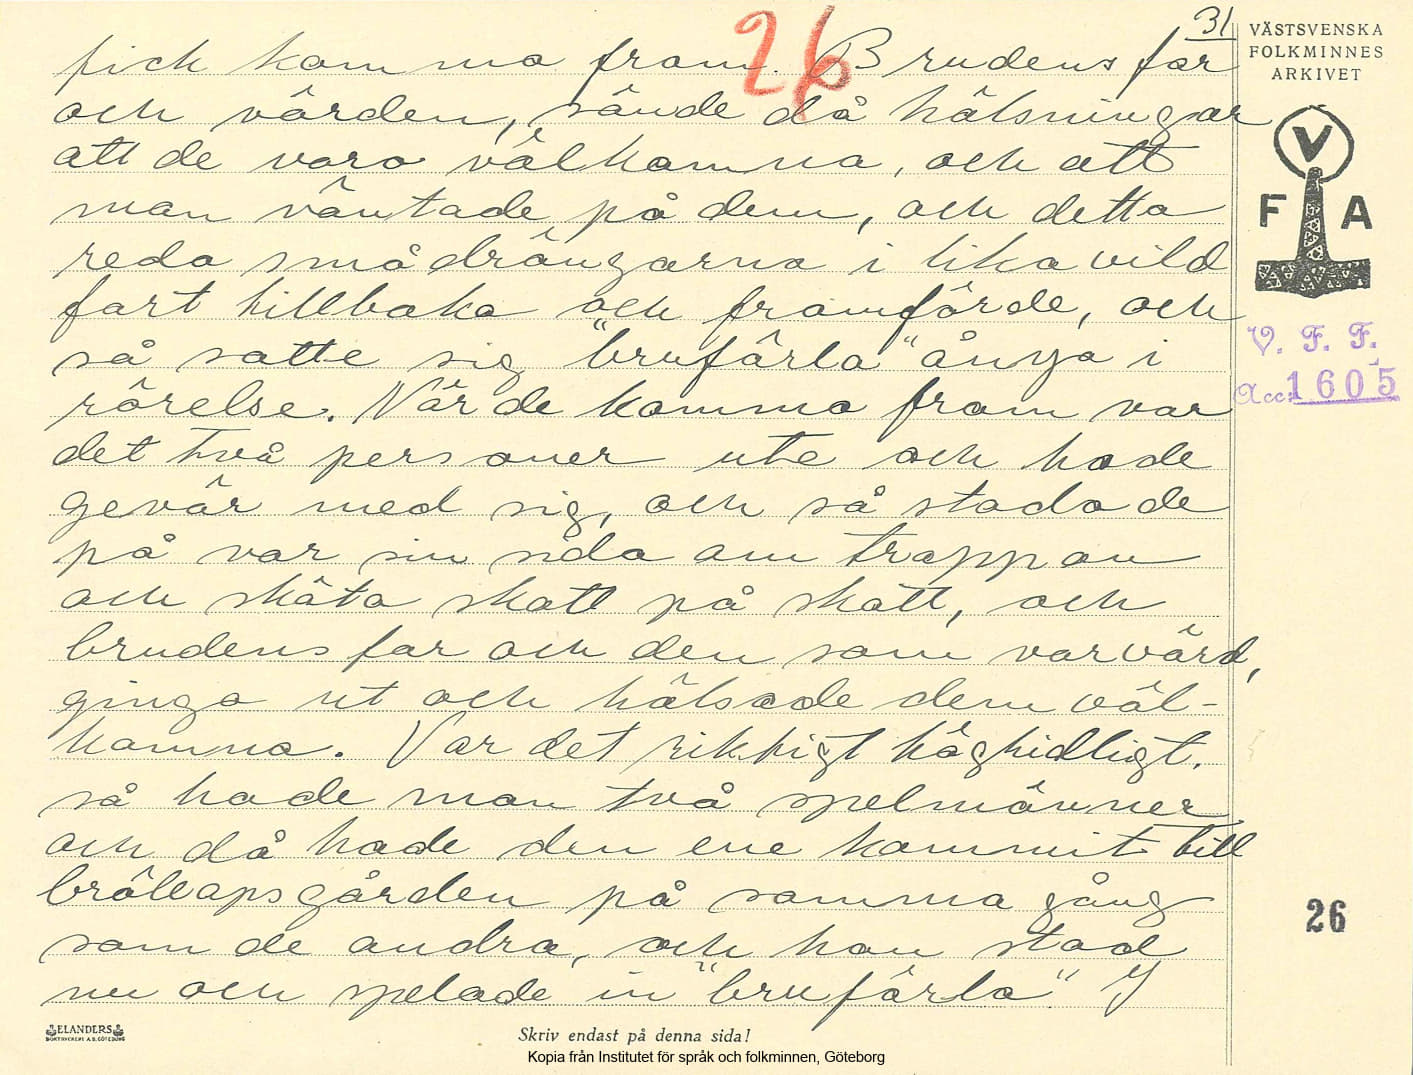 26
31
VÄSTSVENSKA
FOLKMINNES
ARKIVET
fick komma fram. Brudens far
och värden, sände då hälsningar
att de voro välkomna, och att
man väntade på dem, och detta
redo smådrängarna i lika vild
fart tillbaka och framförde, och
så satte sig "bruförla" ånyo i
rörelse. När de kommo fram var
det två personer ute och hade
gevär med sig, och så stodo de
på var sin sida om trappan
och sköto skott på skott, och
brudens far och den som var värd,
gingo ut och hälsade dem väl-
komna. Var det riktigt högtidligt.
så hade man två spelmänner
och då hade den ene kommit till
bröllopsgården på samma gång
som de andra, och han stod
nu och spelade in "bruförla" I
V
F A
V. F. F.
Acc: 1605
26
ELANDERS
BOKTRYCKERI A.B. GÖTEBORG
Skriv endast på denna sida!
Kopia från Institutet för språk och folkminnen, Göteborg